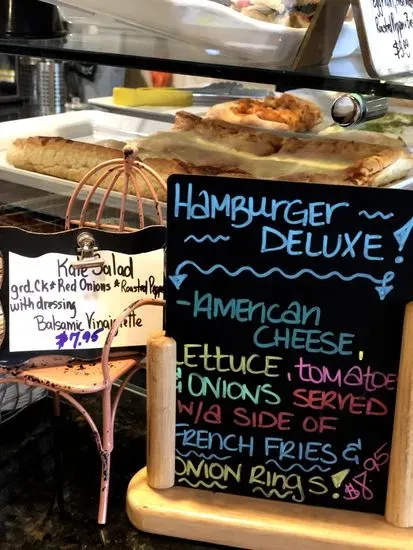 Kale Salad
grd. CK * Red Onions * Roasted Peppe
with dressing
Balsamic Vinaigrette
$7.95
HAMBURGER
DELUXE!
-AMERICAN
CHEESE,
LETTUCE, TOMATOE
& ONIONS SERVED
W/A SIDE OF
FRENCH FRIES &
ONION RINGS!
$8.95